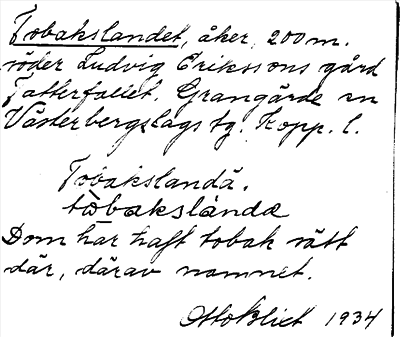 Tobakslandet, åker, 200 m.
söder Ludvig Erikssons gård
Tatterfallet. Grangärde sn
Västerbergslags tg. Kopp. l.
Tobakslandä.
tòbakslàndæ
Dom har haft tobak sått
där, därav namnet.
Otto Bliet 1934